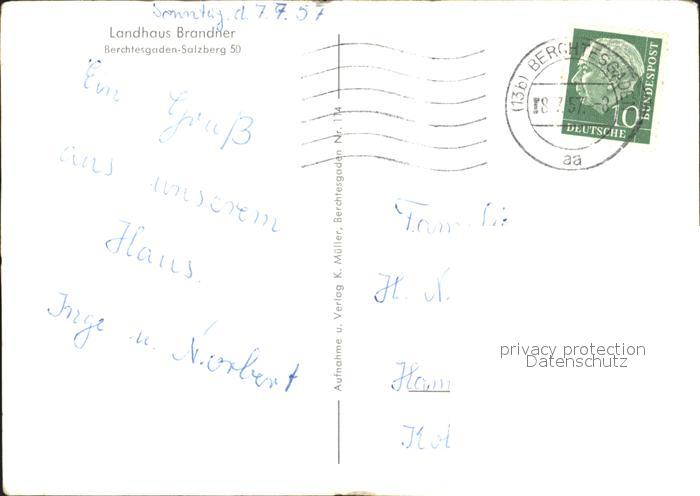 Sonntag, d. 7.7.57
Landhaus Brandner
Berchtesgaden-Salzberg 50
Ein Gruß
aus unserem
Haus.
Inge u. Norbert
Aufnahme u. Verlag K. Müller, Berchtesgaden Nr. 114
(13b) BERCHTESGADEN
aa
10
DEUTSCHE
BUNDESPOST
Familie
H. N.
Ham
privacy protection
Datenschutz